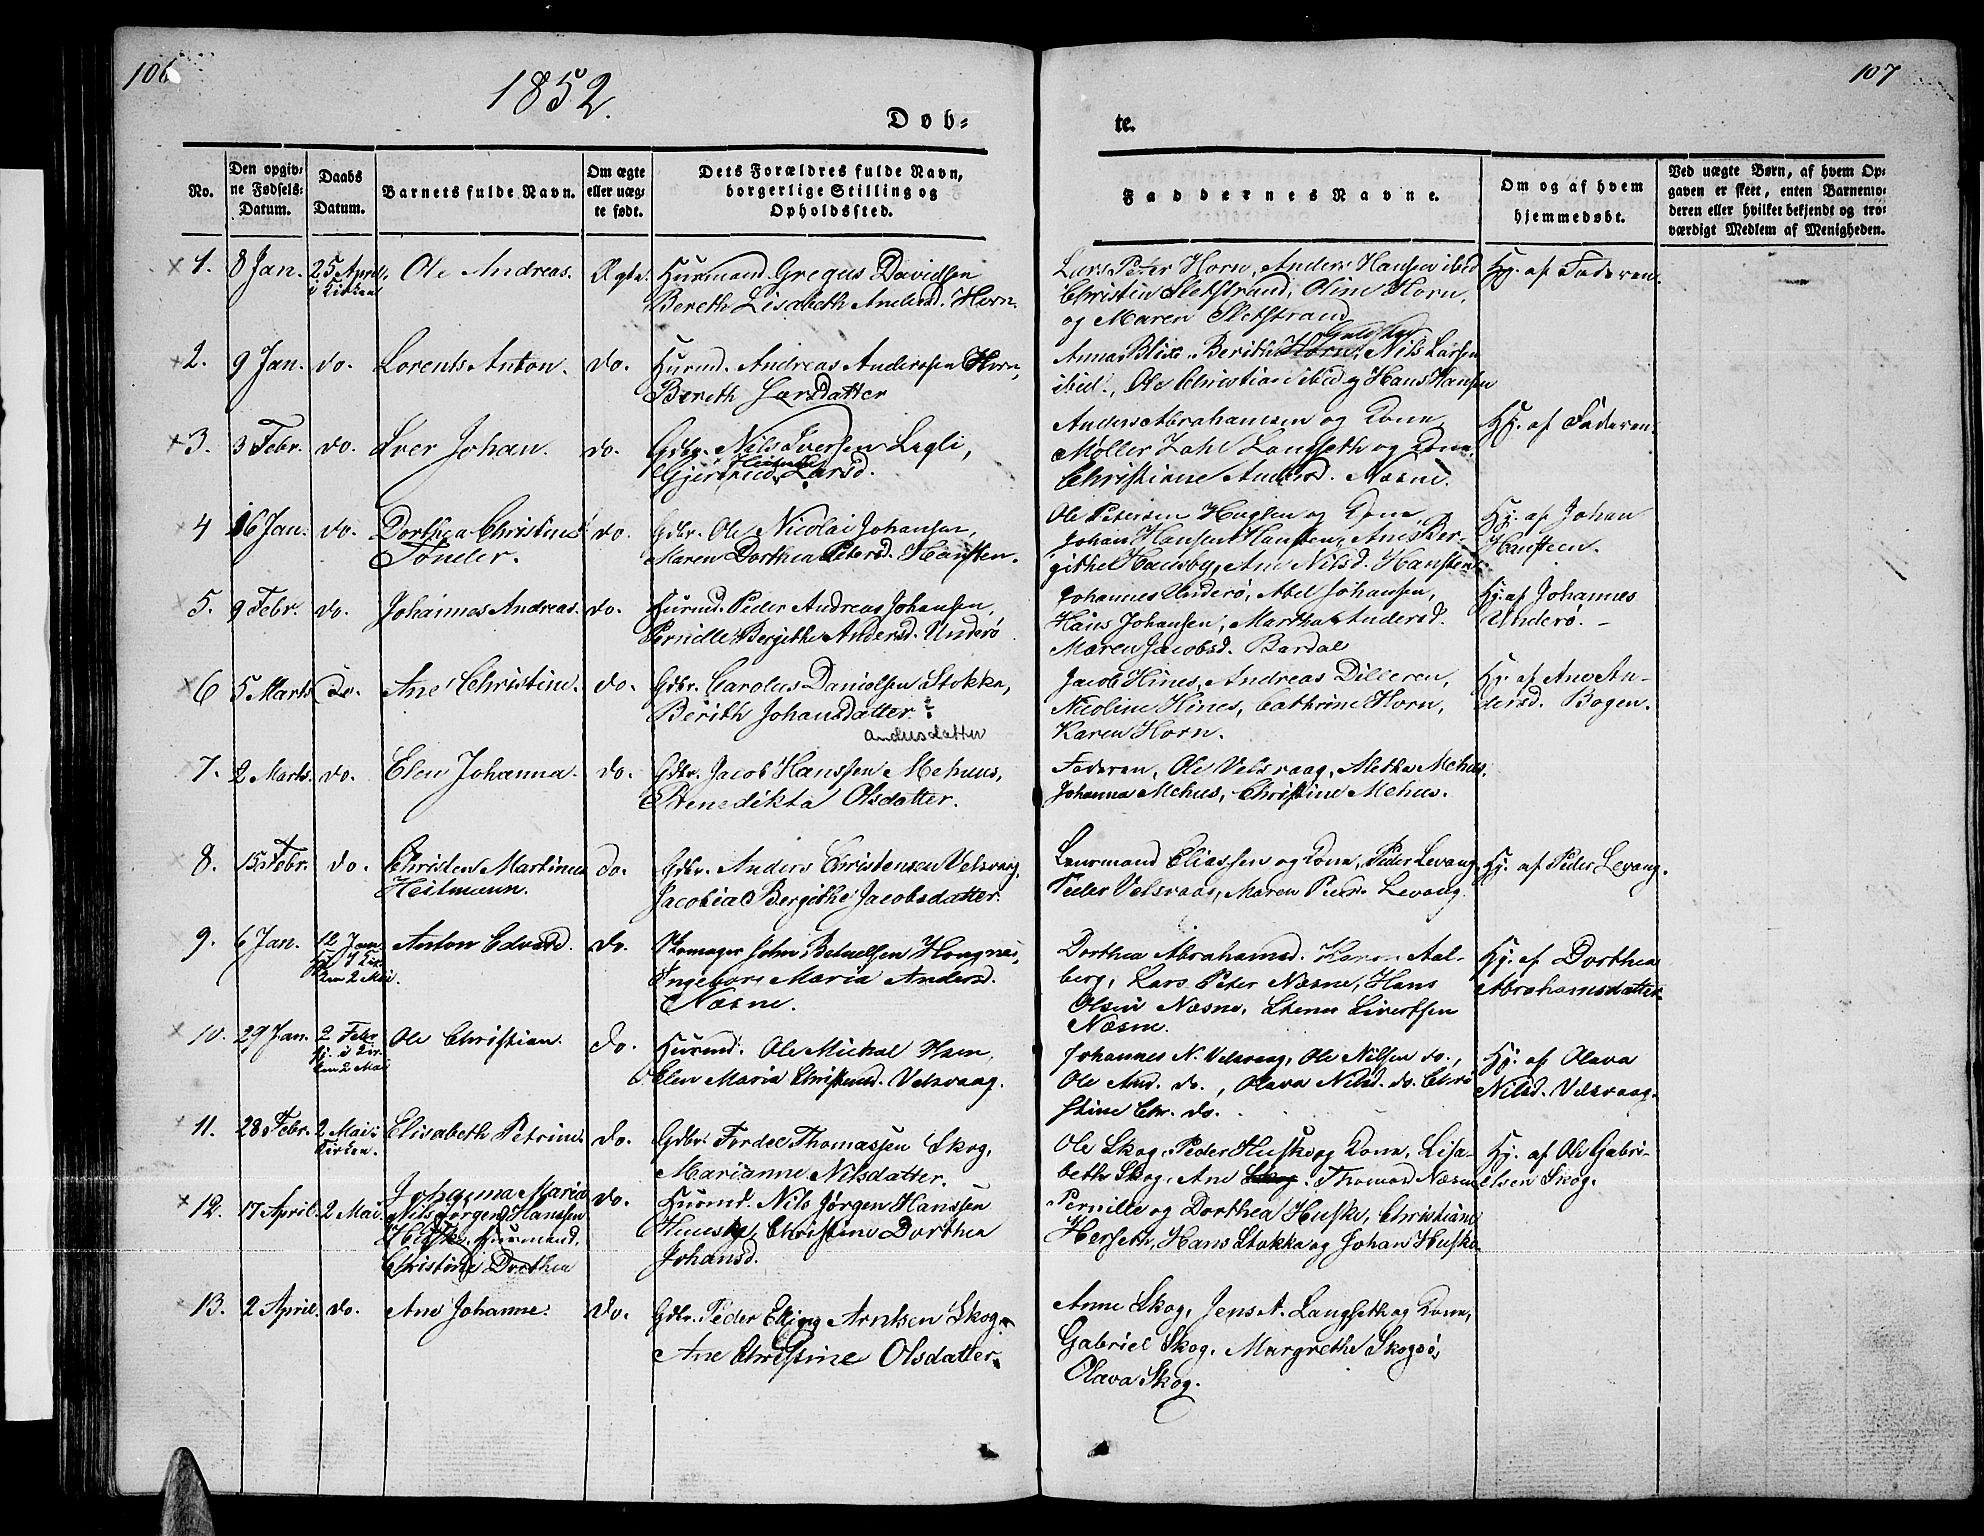 106
1852.
Døb-
No.
Den opgiv-
ne Fødsels-
Datum.
Daabs
Datum.
Barnets fulde Navn.
Om ægte
eller uæg-
te født.
Dets Forældres fulde Navn,
borgerlige Stilling og
Opholdssted.
1. 8 Jan. 25 April i Kirken Ole Andreas. Ægte. Huusmand Gregus Davidsen
Bereth Lisabeth Andersd. Horn.
2. 9 Jan. do. Lorents Anton. do. Huusmd. Andreas Andersen Horn,
Bereth Larsdatter
3. 3 Febr. do. Iver Johan. do. Gdbr. Nils Iversen Leyli,
Gjertrud Larsd.
4 16 Jan. do. Dorthea Christine do. Gdbr. Ole Nicolai Johansen,
Tønder. Maren Dorthea Petersd. Hansteen.
5. 9 Febr. do. Johannes Andreas. do. Huusmd. Peder Andreas Johansen,
Pernille Bergithe Andersd. Underø
6 5 Marts do. Ane Christine. do. Gdbr. Carolus Danielsen Stokka,
Berith Johansdatter ?
andersdatter
7. 2 Marts. do. Elen Johanna. do. Gdbr. Jacob Hanssen Mehuus,
Benedikta Olsdatter.
8. 15 Febr. do. Christen Martinus do. Gdbr. Anders Christensen Velsvaag,
Heitmann. Jacobia Bergithe Jacobsdatter.
9. 6 Jan. 12 Jan. Anton Edvard. do. Skomager John Betuelsen Hougnes,
den 2 Mai. Ingeborg Maria Andersd.
Næsne.
10. 29 Jan. 2 Febr Ole Christian. do. Huusmd. Ole Mickal Hem,
Hj. i Kir-
den 2 Mai Elen Maria Christensd. Velsvaag.
11. 28 Febr. 2 Mai i Elisabeth Petrine. do. Gdbr. Fordel Thomassen Skog,
Kirken. Marianne Nilsdatter.
12. 17 April. 2 Mai. Johanna Maria do. Huusmd. Nils Jørgen Hanssen
Nils Jørgen Hanssen
Huske, Huusmand, Christine Dorthea
Christine Dorthea Johansd.
13. 2 April. do. Ane Johanne. do. Gdbr. Peder Eling Arntsen Skog.
Ane Christine Olsdatter.
107
te.
Faddernes Navne.
Om og af hvem
hjemmedøbt.
Ved uægte Børn, af hvem Op-
gaven er skeet, enten Barnemo-
deren eller hvilket bekjendt og tro-
værdigt Medlem af Menigheden.
Lars Peter Horn, Anders Hansen ibid Hj. af Faderen.
Christin Sletstrand, Oline Horn,
og Maren Sletstrand
Anna Blix, Berithe Horn, Nils Larsen
ibid., Ole Christian ibid og Hans Hansen
Anders Abrahamsen og Kone Hj. af Faderen.
Møller Zahl Langseth og Kone,
Christiane Andersd. Næsne.
Ole Petersen Huglen og Kone Hj. af Johan
Johan Hansen Hansteen, Anne Ber- Hansteen.
githe Huusby, Ane Nilsd. Hansteen
Johannes Underø, Abel Johansen, Hj. af Johannes
Hans Johansen, Martha Andersd. Underø.
Maren Jacobsd. Bardal
Jacob Hines, Andreas Dilleren, Hj. af Ane An-
Nicoline Hines, Cathrine Horn, dersd. Bogen.
Karen Horn.
Faderen, Ole Velsvaag, Metha Mehus,
Johanna Mehus, Christine Mehus.
Leurmand Eliassen og Kone, Peder Levang, Hj. af Peder Levang.
Peder Velsvaag, Maren Pedersd. Levang.
Dorthea Abrahamsd. Karen Aal- Hj. af Dorthea
berg, Lars Peter Næsne, Hans Abrahamsdatter
Olsen Næsne, Stener Sivertsen
Næsne.
Johannes N. Velsvaag, Ole Nilsen do., Hj. af Olava
Ole And. do., Olava Nilsd. do. Chri- Nilsd. Velsvaag.
stine Chr. do.
Ole Skog, Peder Huske og Kone, Elisa- Hj. af Ole Gabri-
beth Skog, Ane Skog. Thomas Næsne elsen Skog.
Pernille og Dorthea Huske, Christiane
Herseth, Hans Stokka og Johan Huske
Anne Skog, Jens A. Langseth og Kone,
Gabriel Skog, Margrethe Skogsø,
Olava Skog.